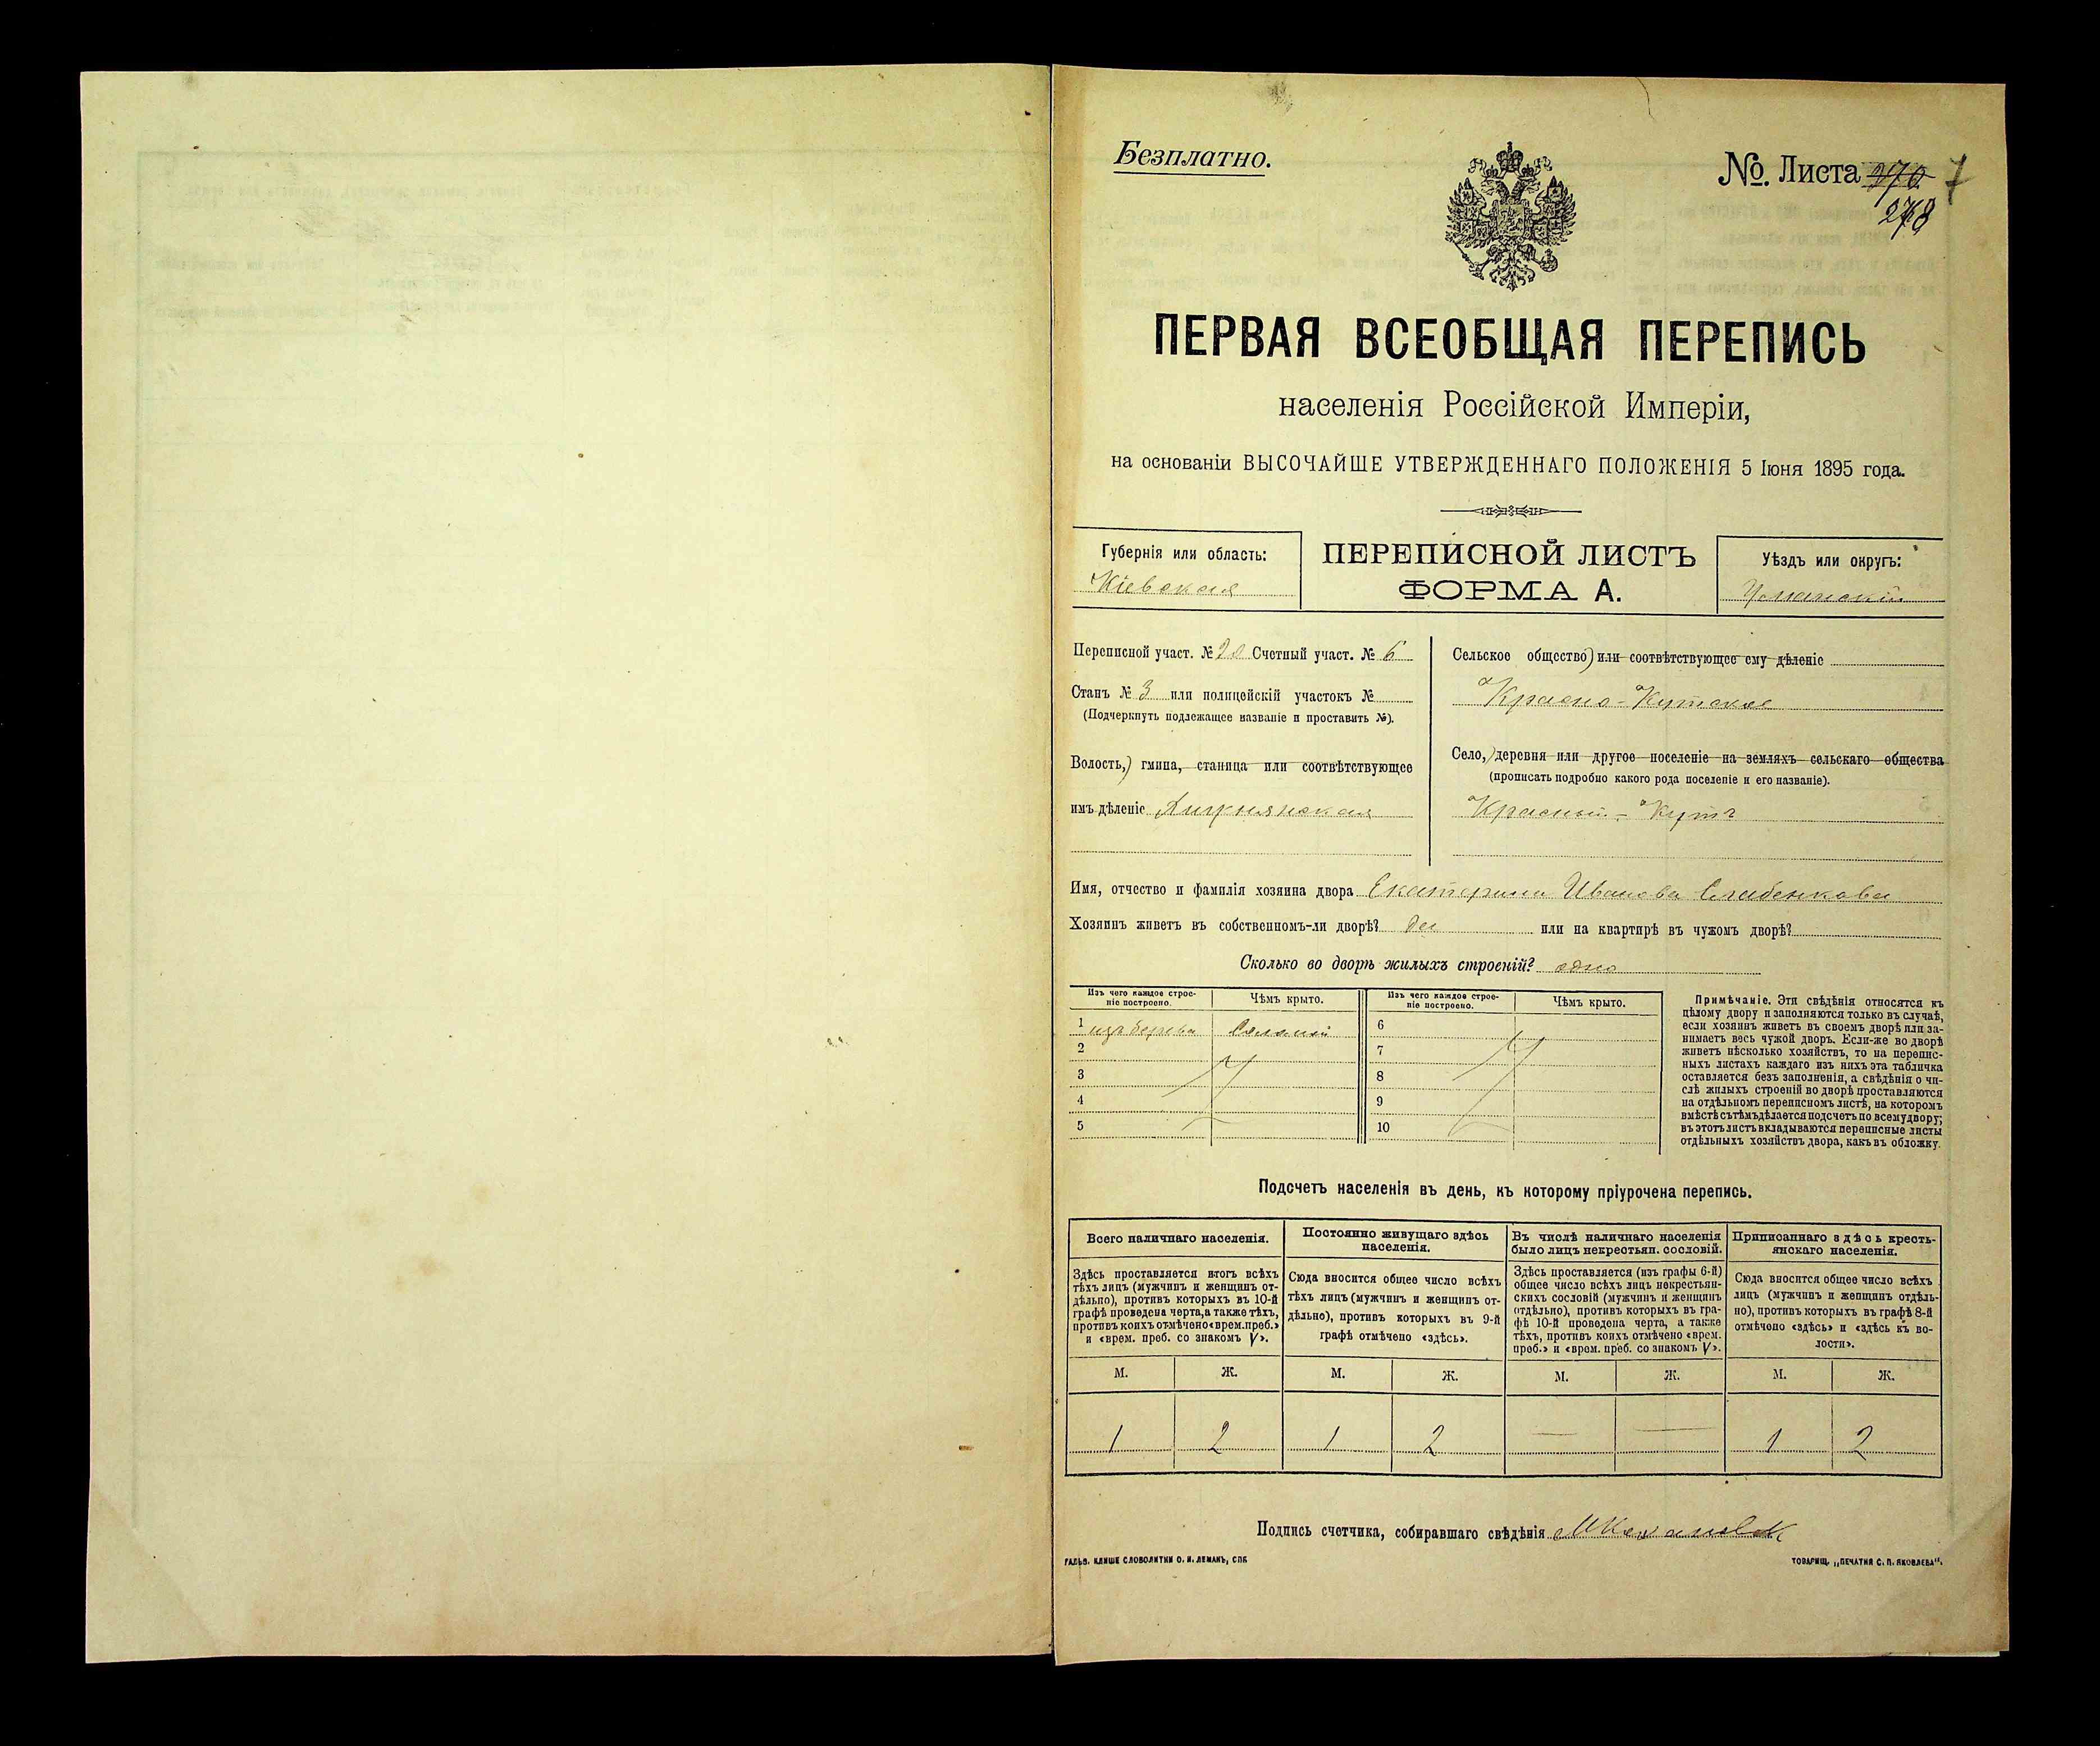 Безплатно.
№. Листа 270 7
278
ПЕРВАЯ ВСЕОБЩАЯ ПЕРЕПИСЬ
населенія Россійской Имперіи,
на основаніи ВЫСОЧАЙШЕ УТВЕРЖДЕННАГО ПОЛОЖЕНІЯ 5 Іюня 1895 года.
Губернія или область:
Кіевская
ПЕРЕПИСНОЙ ЛИСТЪ
ФОРМА А.
Уѣздъ или округъ:
Уманскій
Переписной участ. № Счетный участ. № 6
Станъ № 3 или полицейскій участокъ №
(Подчеркнуть подлежащее названіе и проставить №).
Волость,) гмина, станица или соотвѣтствующее
имъ дѣленіе
Сельское общество) или соотвѣтствующее ему дѣленіе
Красно-Кутское
Село,) деревня или другое поселеніе на земляхъ сельскаго общества
(прописать подробно какого рода поселеніе и его названіе).
Красный-Кутъ
Имя, отчество и фамилія хозяина двора Екатерина Иванова Слабенкова
Хозяинъ живетъ въ собственномъ-ли дворѣ? да или на квартирѣ въ чужомъ дворѣ?
Сколько во дворѣ жилыхъ строеній? одно
Изъ чего каждое строе-
ніе построено.
Чѣмъ крыто.
1 изъ дерева Соломой
2
3
4
5
Изъ чего каждое строе-
ніе построено.
Чѣмъ крыто.
6
7
8
9
10
Примѣчаніе. Эти свѣдѣнія относятся къ
цѣлому двору и заполняются только въ случаѣ,
если хозяинъ живетъ въ своемъ дворѣ или за-
нимаетъ весь чужой дворъ. Если-же во дворѣ
живетъ нѣсколько хозяйствъ, то на перепис-
ныхъ листахъ каждаго изъ нихъ эта табличка
оставляется безъ заполненія, а свѣдѣнія о чи-
слѣ жилыхъ строеній во дворѣ проставляются
на отдѣльномъ переписномъ листѣ, на которомъ
вмѣстѣ съ тѣмъ дѣлается подсчетъ по всему двору;
въ этотъ листъ вкладываются переписные листы
отдѣльныхъ хозяйствъ двора, какъ въ обложку.
Подсчетъ населенія въ день, къ которому пріурочена перепись.
Всего наличнаго населенія.
Здѣсь проставляется итогъ всѣхъ
тѣхъ лицъ (мужчинъ и женщинъ от-
дѣльно), противъ которыхъ въ 10-й
графѣ проведена черта, а также тѣхъ,
противъ коихъ отмѣчено «врем. преб.»
и «врем. преб. со знакомъ V».
Постоянно живущаго здѣсь
населенія.
Сюда вносится общее число всѣхъ
тѣхъ лицъ (мужчинъ и женщинъ от-
дѣльно), противъ которыхъ въ 9-й
графѣ отмѣчено «здѣсь».
Въ числѣ наличнаго населенія
было лицъ некрестьян. сословій.
Здѣсь проставляется (изъ графы 6-й)
общее число всѣхъ лицъ некрестьян-
скихъ сословій (мужчинъ и женщинъ
отдѣльно), противъ которыхъ въ гра-
фѣ 10-й проведена черта, а также
тѣхъ, противъ коихъ отмѣчено «врем.
преб.» и «врем. преб. со знакомъ V».
Приписаннаго здѣсь кресть-
янскаго населенія.
Сюда вносится общее число всѣхъ
лицъ (мужчинъ и женщинъ отдѣль-
но), противъ которыхъ въ графѣ 8-й
отмѣчено «здѣсь» и «здѣсь къ во-
лости».
М. Ж. М. Ж. М. Ж. М. Ж.
1 2 1 2 — — 1 2
Подпись счетчика, собиравшаго свѣдѣнія
ГАЛЬВ. КЛИШЕ СЛОВОЛИТНИ О. И. ЛЕМАНЪ, СПБ
ТОВАРИЩ. „ПЕЧАТНЯ С. П. ЯКОВЛЕВА“.